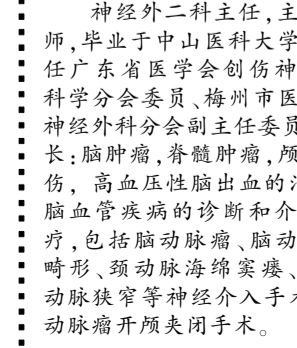 神经外二科主任,主
师,毕业于中山医科大学
任广东省医学会创伤神
科学分会委员、梅州市医
神经外科分会副主任委员
长:脑肿瘤,脊髓肿瘤,颅
伤,高血压性脑出血的治
脑血管疾病的诊断和介
疗,包括脑动脉瘤、脑动
畸形、颈动脉海绵窦瘘、
动脉狭窄等神经介入手术
动脉瘤开颅夹闭手术。